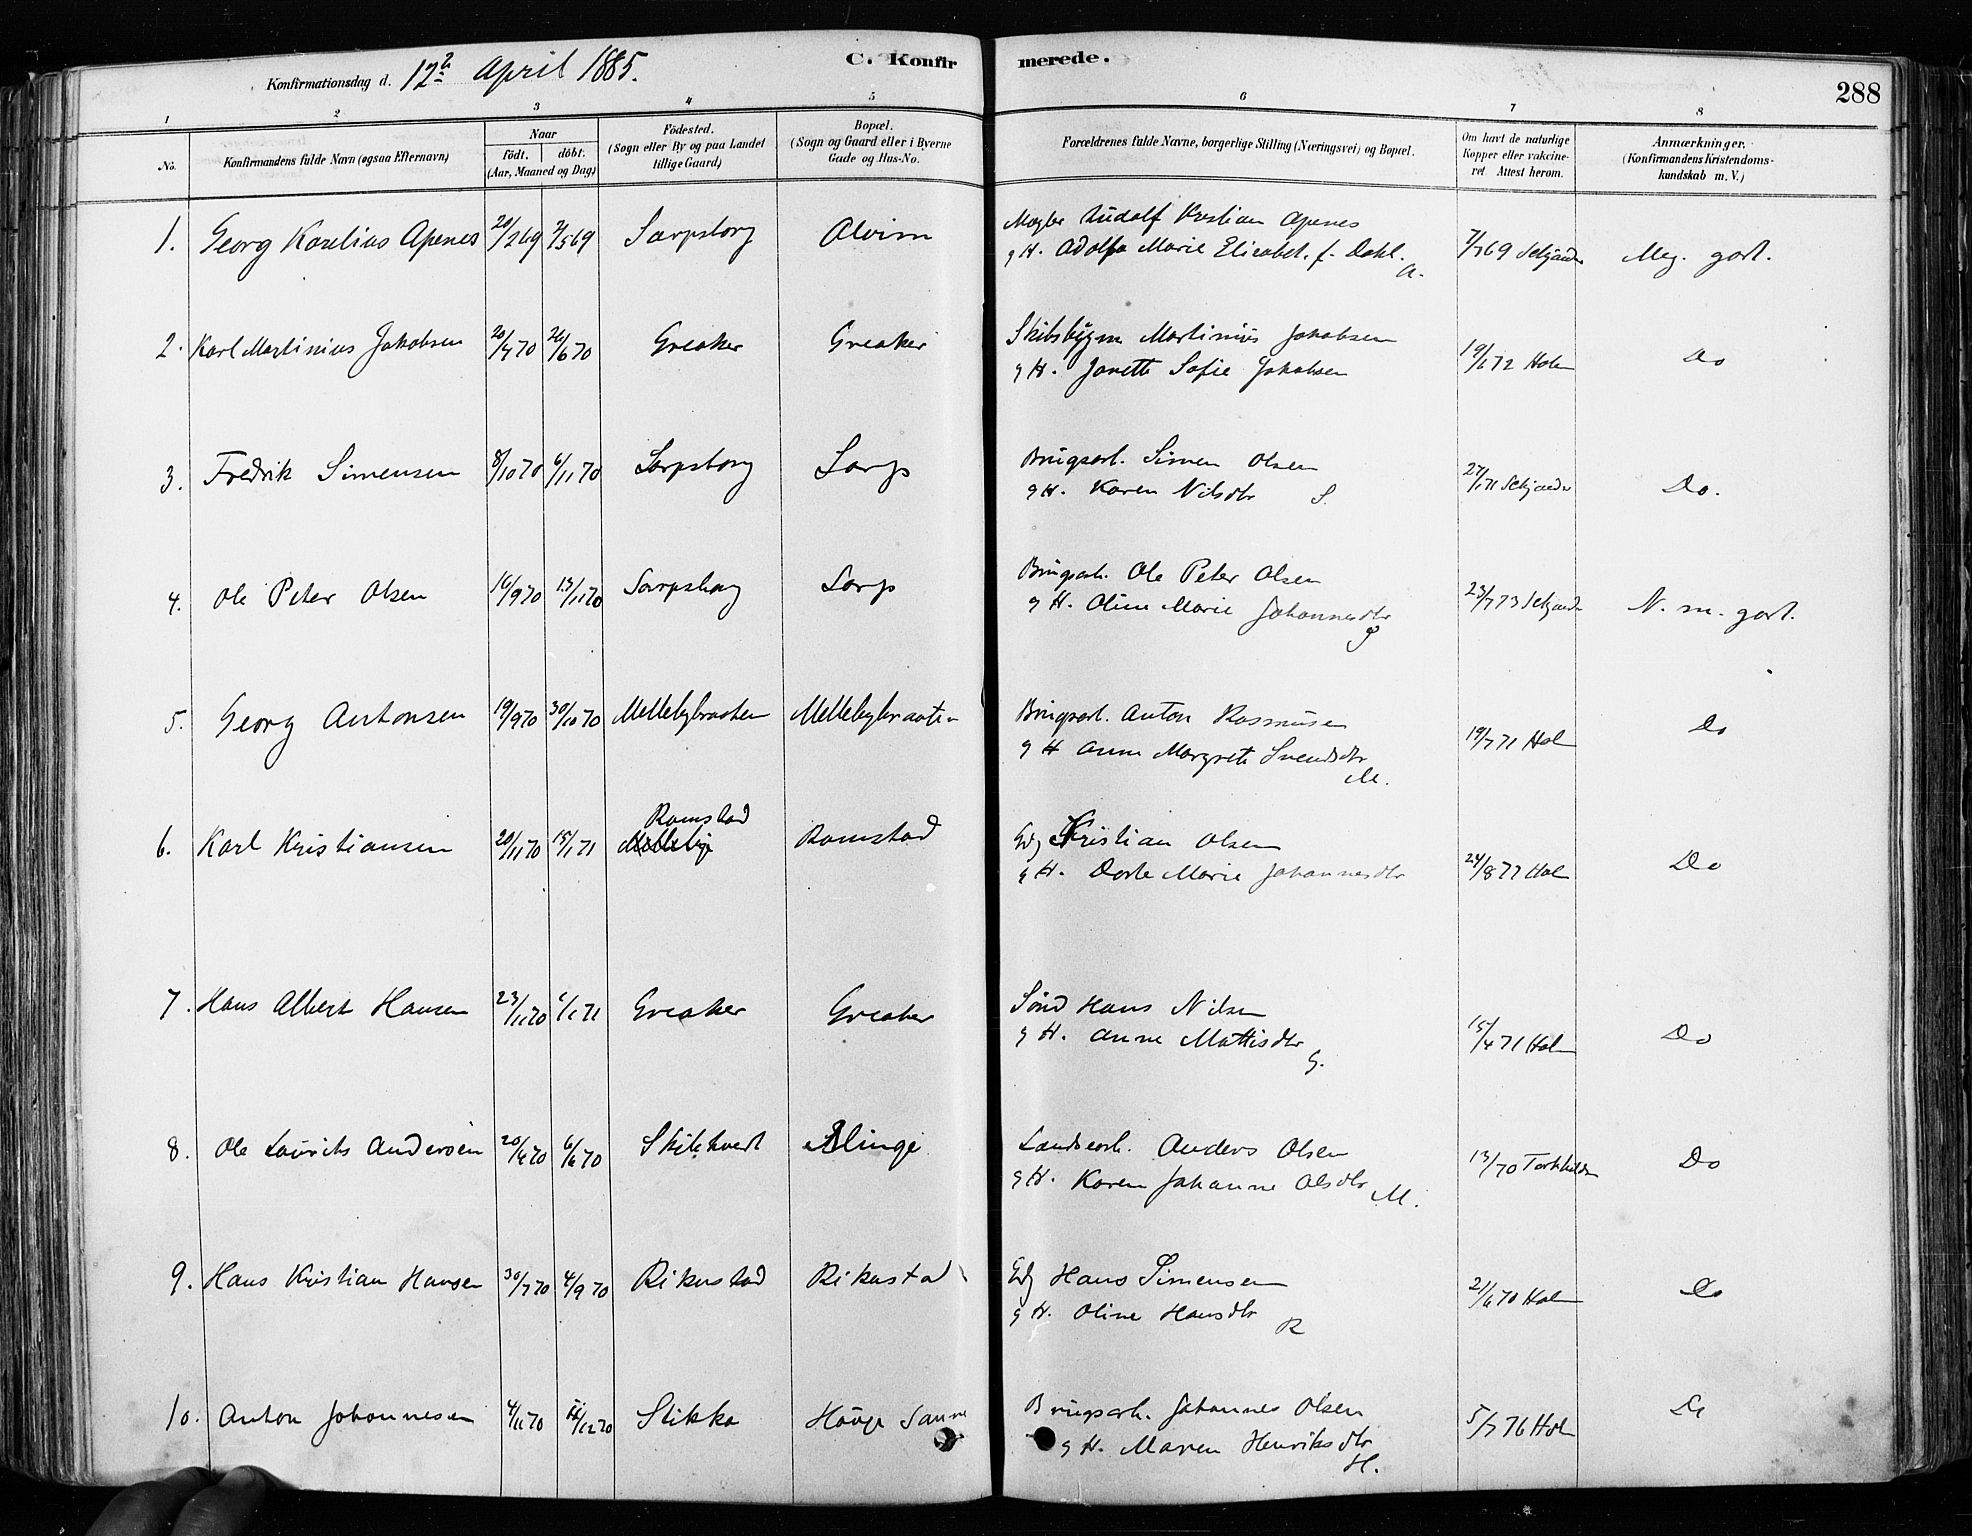 Konfirmationsdag d. 12te April 1885.
C. Konfirmerede.
288
1 2 3 4 5 6 7 8
No.
Konfirmandens fulde Navn (ogsaa Efternavn)
Naar
födt. döbt.
(Aar, Maaned og Dag)
Födested.
(Sogn eller By og paa Landet
tillige Gaard)
Bopæl.
(Sogn og Gaard eller i Byerne
Gade og Hus-No.
Forældrenes fulde Navne, borgerlige Stilling (Næringsvei) og Bopæl.
Om havt de naturlige
Kopper eller vakcine-
ret Attest herom.
Anmærkninger.
(Konfirmandens Kristendoms-
kundskab m. V.)
1. Georg Karelius Apenes 20/2 69 2/5 69 Sarpsborg Alvim Mægler Rudolf Kristian Apenes 7/7 69 Meg. godt.
g H. Adolfa Marie Elisabet f. Dahl. A.
2. Karl Martinius Jakobsen 20/4 70 26/6 70 Greaker Greaker Skibsbygm Martinius Jakobsen 19/6 72 Holm Do
g H. Janette Sofie Jakobsen
3. Fredrik Simensen 8/10 70 6/11 70 Sarpsborg Sarp Brugsarb. Simen Olsen 27/1 71 Do.
g H. Karen Nilsdtr S.
4. Ole Peter Olsen 16/9 70 13/11 70 Sarpsborg Sarp Brugsarb. Ole Peter Olsen 23/7 73 N. m. godt.
g H. Oline Marie Johannesdtr
5. Georg Antonsen 19/9 70 30/10 70 Mellebybraaten Mellebybraaten Brugsarb. Anton Rasmusen 19/7 71 Hol Do
g H Anne Margrete Svendsdtr M.
Romstad
6. Karl Kristiansen 20/11 70 15/1 71 Melleby Romstad Gdr Kristian Olsen 24/8 77 Hol Do
g H. Dorte Marie Johannesdtr
7. Hans Albert Hansen 23/11 70 6/1 71 Greaker Greaker Smd Hans Nilsen 15/4 71 Holm Do
g H. Anne Mattisdtr G.
8. Ole Laurits Andersen 20/4 70 6/6 70 Skiltvedt Alinge Landarb. Anders Olsen 13/ 70 Torkkildsen Do
g H. Karen Johanne Olsdtr M.
9. Hans Kristian Hansen 30/7 70 4/9 70 Rikustad Rikustad Gdr Hans Simensen 21/6 70 Holm Do
g H. Oline Hansdtr R
10. Anton Johannesen 4/11 70 /12 70 Stikka Hauge Sanne Brugsarb. Johannes Olsen 5/7 76 Hol Do
g H. Maren Henriksdtr H.